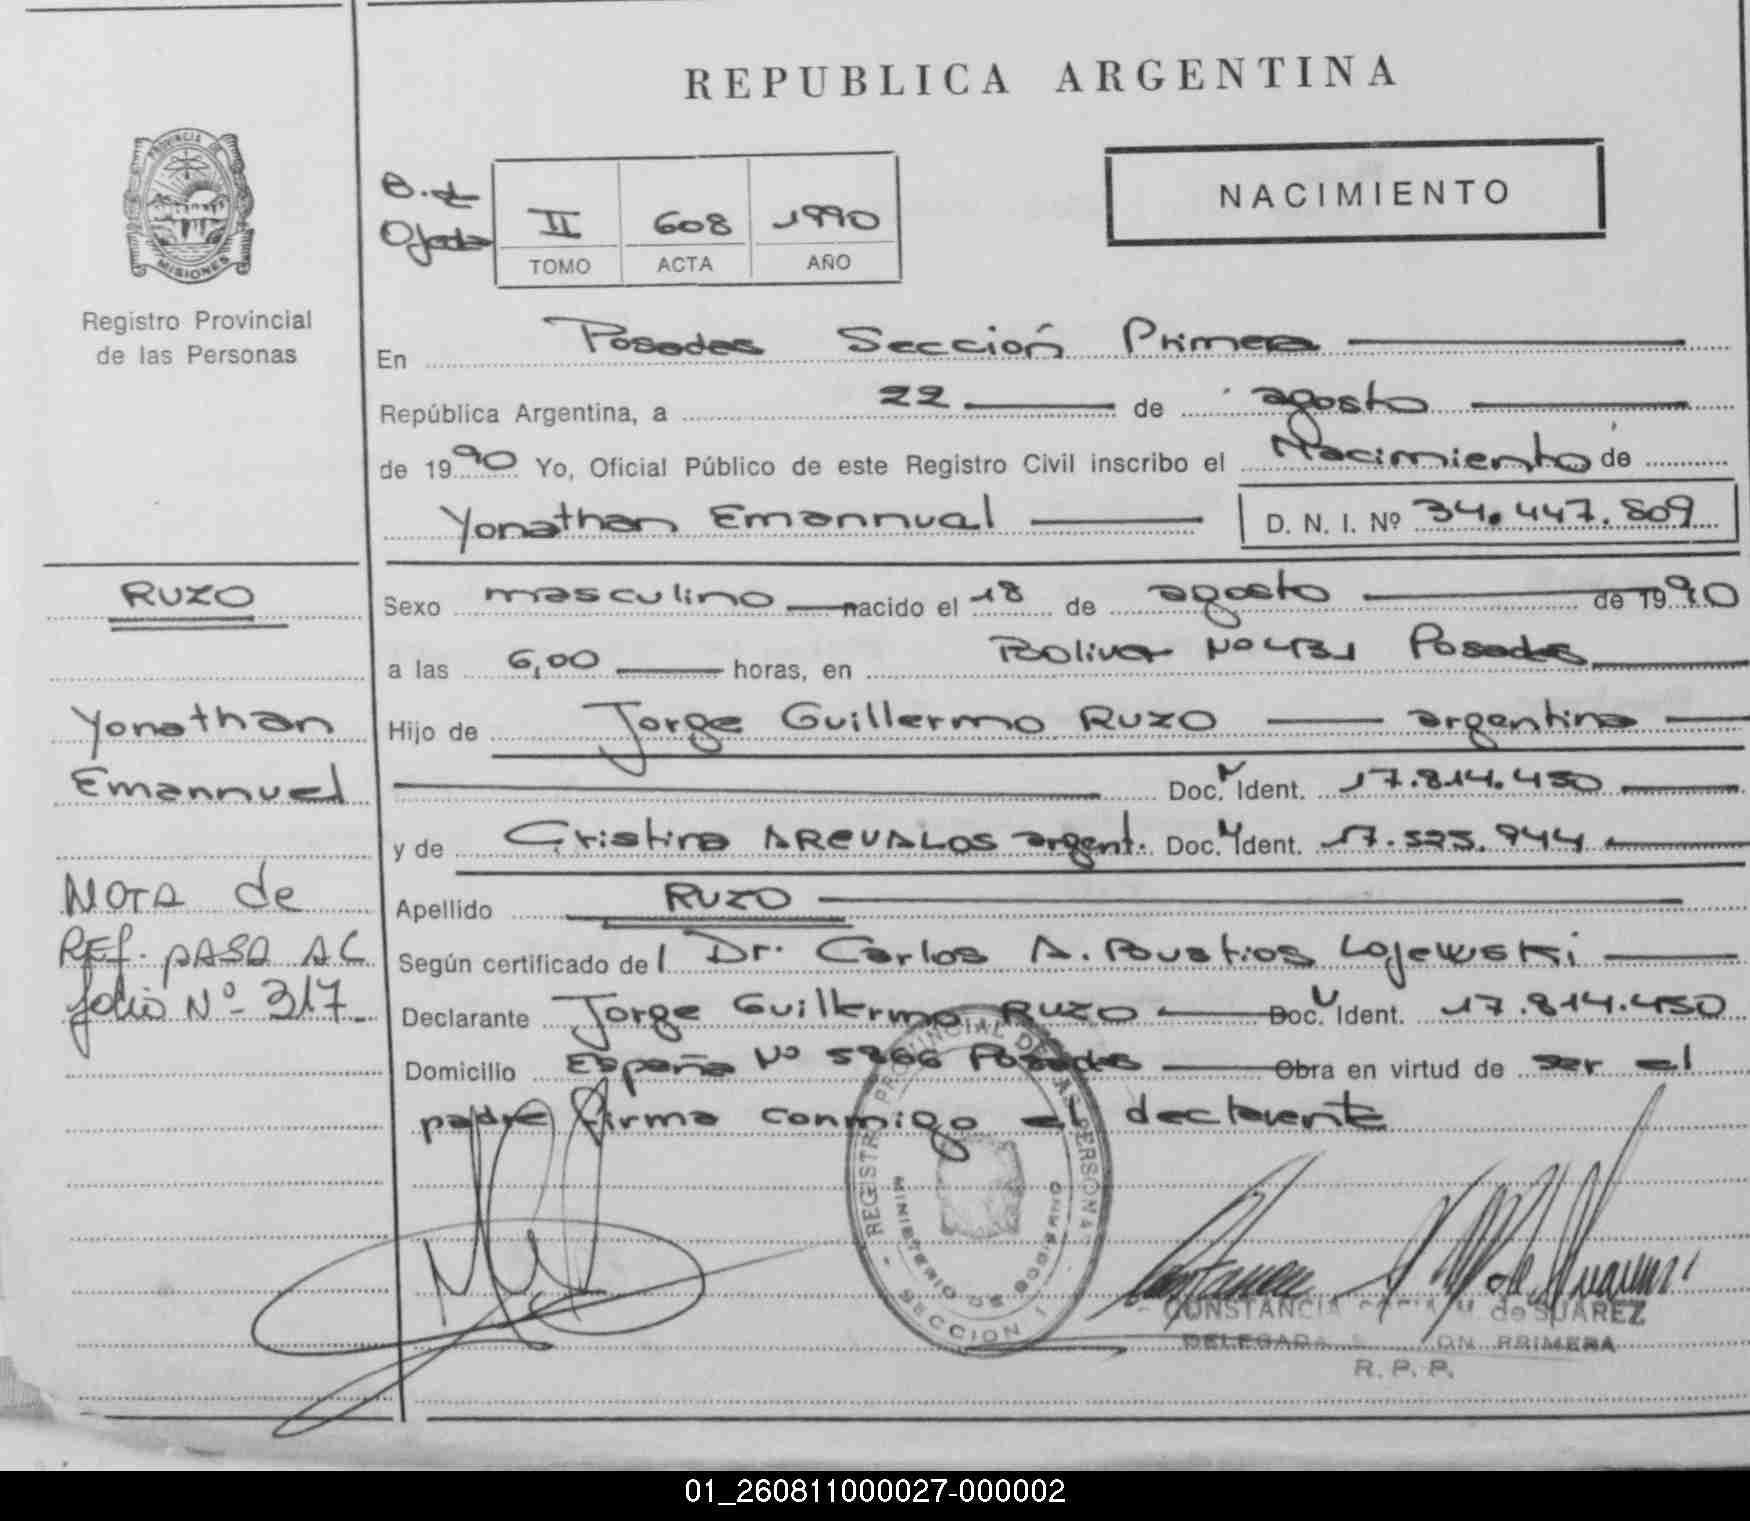 REPUBLICA ARGENTINA
PROVINCIA DE
MISIONES
Registro Provincial
de las Personas
B. de
Ojeda
II 608 1990
TOMO ACTA AÑO
NACIMIENTO
En Posadas Sección Primera
República Argentina, a 22 de agosto
de 1990 Yo, Oficial Público de este Registro Civil inscribo el Nacimiento de
Yonathan Emannual D. N. I. Nº 34.447.809
RUZO
Yonathan
Emannuel
NOTA de
REF. PASA AL
folio Nº- 317
Sexo masculino nacido el 18 de agosto de 1990
a las 6,00 horas, en Bolivar Nº 431 Posadas
Hijo de Jorge Guillermo RUZO argentino
Doc. N Ident. 17.814.450
y de Cristina AREVALOS argent. Doc. N Ident. 17.525.944
Apellido RUZO
Según certificado del Dr. Carlos A. Bustios Lojewski
Declarante Jorge Guillermo RUZO Doc. Ident. 17.814.450
Domicilio España Nº 5866 Posadas Obra en virtud de ser el
padre firma conmigo el declarante
REGISTRO PROVINCIAL DE LAS PERSONAS
MINISTERIO DE GOBIERNO
SECCION 1
CONSTANCIA M. de SUAREZ
DELEGADA PRIMERA
R. P. P.
01_260811000027-000002